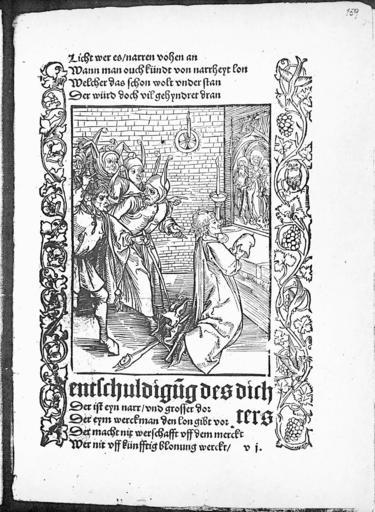 159
Licht wer es/narren vohen an
Wann man ouch kündt von narrheyt lon
Welcher das schon wolt vnder stan
Der würd doch vil gehyndret dran
entschuldigūg des dich
ters
Der ist eyn narr/vnd grosser dor
Der eym werckman den lon gibt vor
Der macht nit werschafft vff dem merckt
Wer nit vff künfftig blonung werckt/ v j.